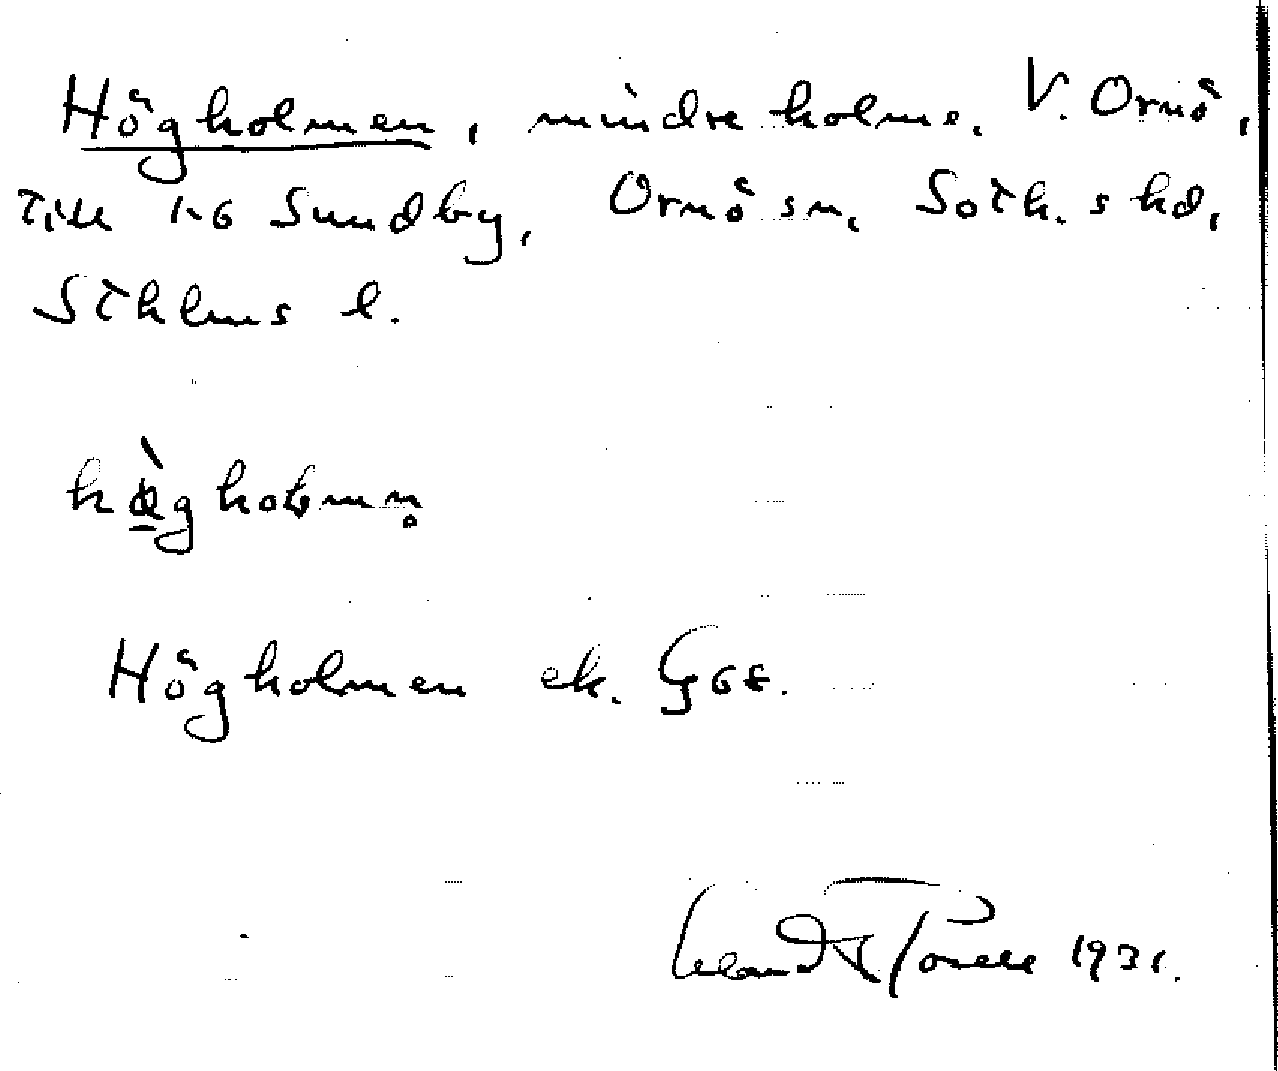 Högholmen, mindre holme. V. Ornö,
till 1-6 Sundby, Ornö sn. Soth. s hd,
Sthlms l.
Högholmen ek. G 68.
1931.